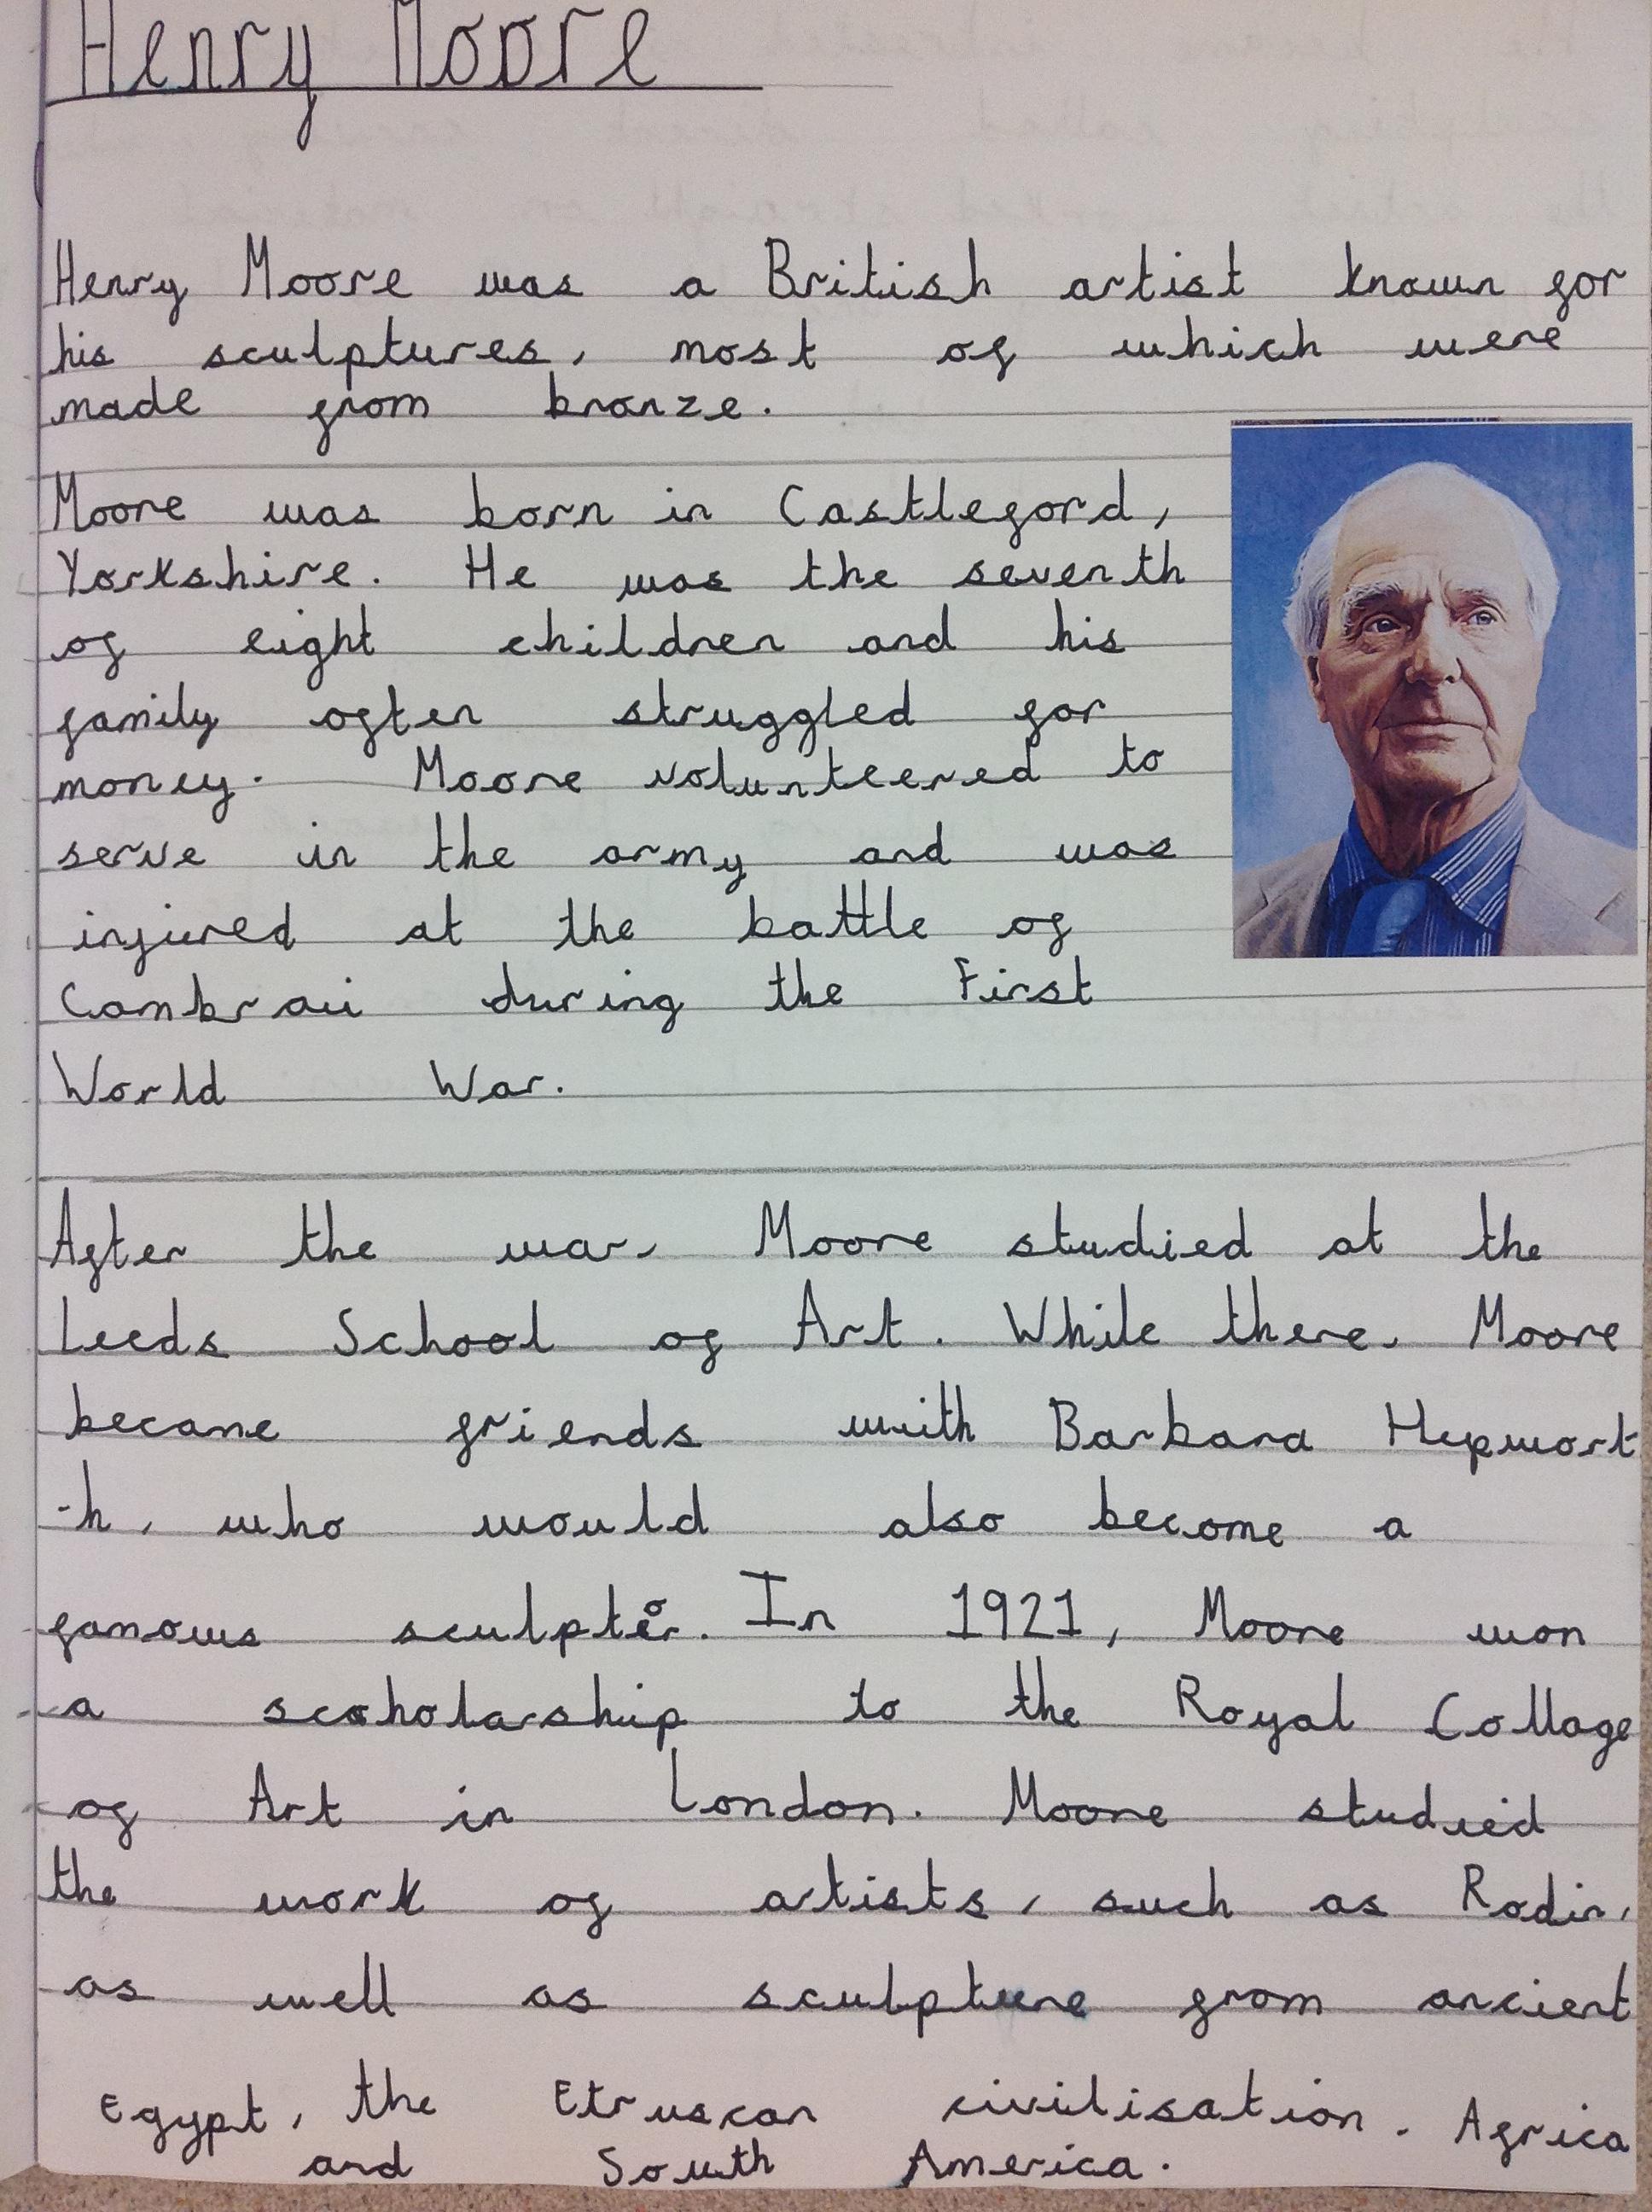 Henry Moore
Henry Moore was a British artist known for
his sculptures, most of which were
made from bronze.
Moore was born in Castleford,
Yorkshire. He was the seventh
of eight children and his
family often struggled for
money. Moore volunteered to
serve in the army and was
injured at the battle of
Cambrai during the First
World War.
After the war, Moore studied at the
Leeds School of Art. While there, Moore
became friends with Barbara Hepwort
-h, who would also become a
famous sculptor. In 1921, Moore won
a scoholarship to the Royal Collage
of Art in London. Moore studied
the work of artists, such as Rodin,
as well as sculpture from ancient
Egypt, the Etruscan civilisation, Africa
and South America.